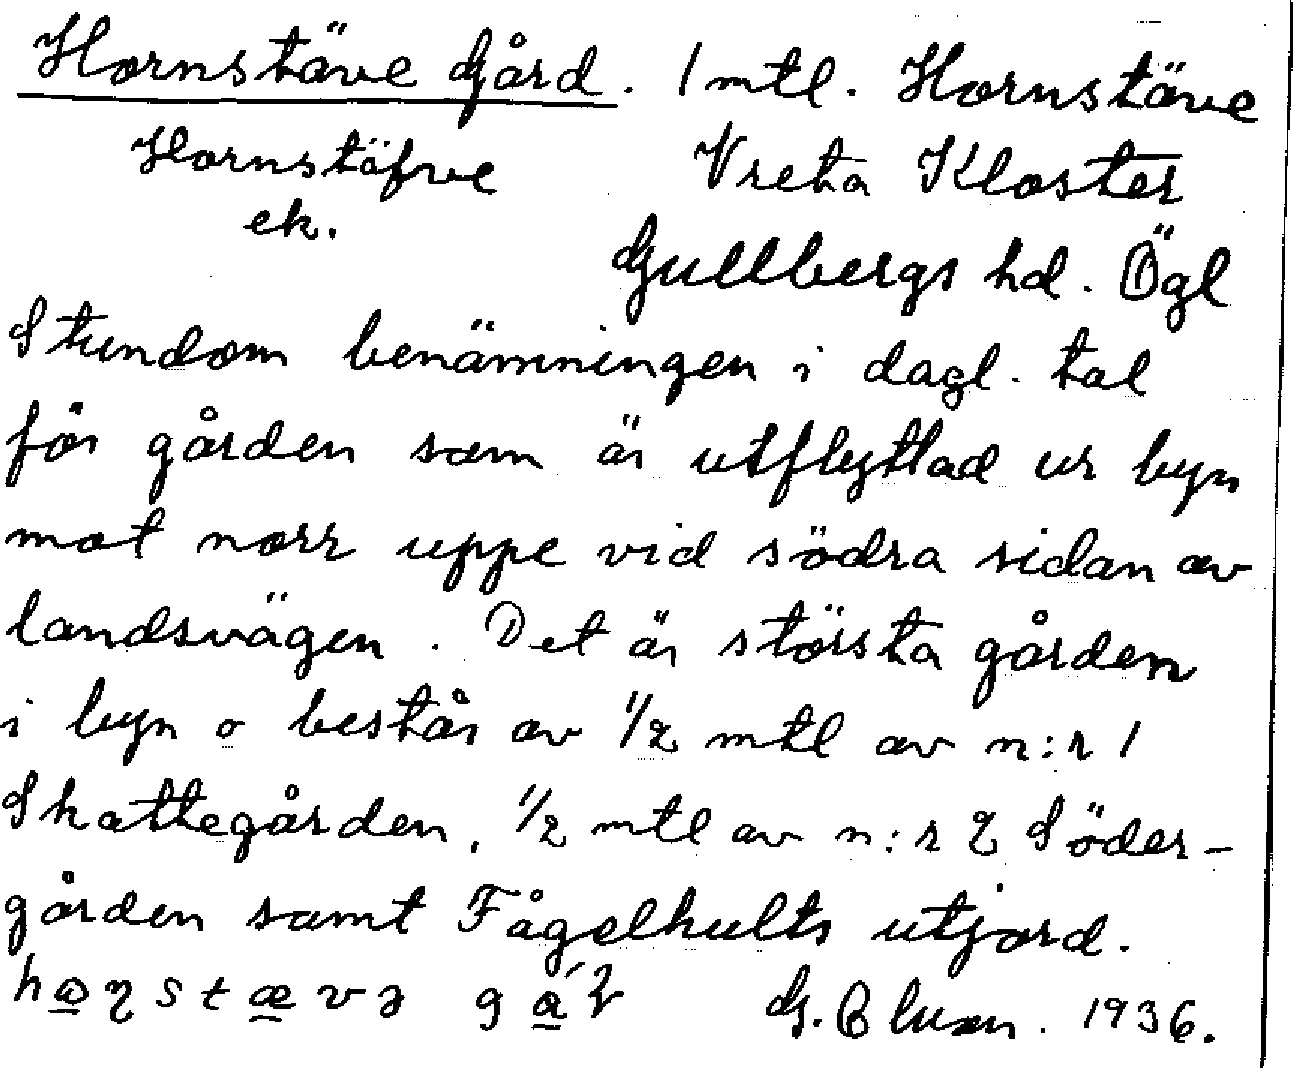 Hornstäve Gård. 1 mtl. Hornstäve
Hornstäfve Vreta Kloster
ek.
Gullbergs hd. Ögl
Stundom benämningen i dagl. tal
för gården som är utflyttad ur byn
mot norr uppe vid södra sidan av
landsvägen. Det är största gården
i byn o består av 1/2 mtl av n:r 1
Skattegården, 1/2 mtl av n:r 2 Söder-
gården samt Fågelhults utjord.
G. 1936.